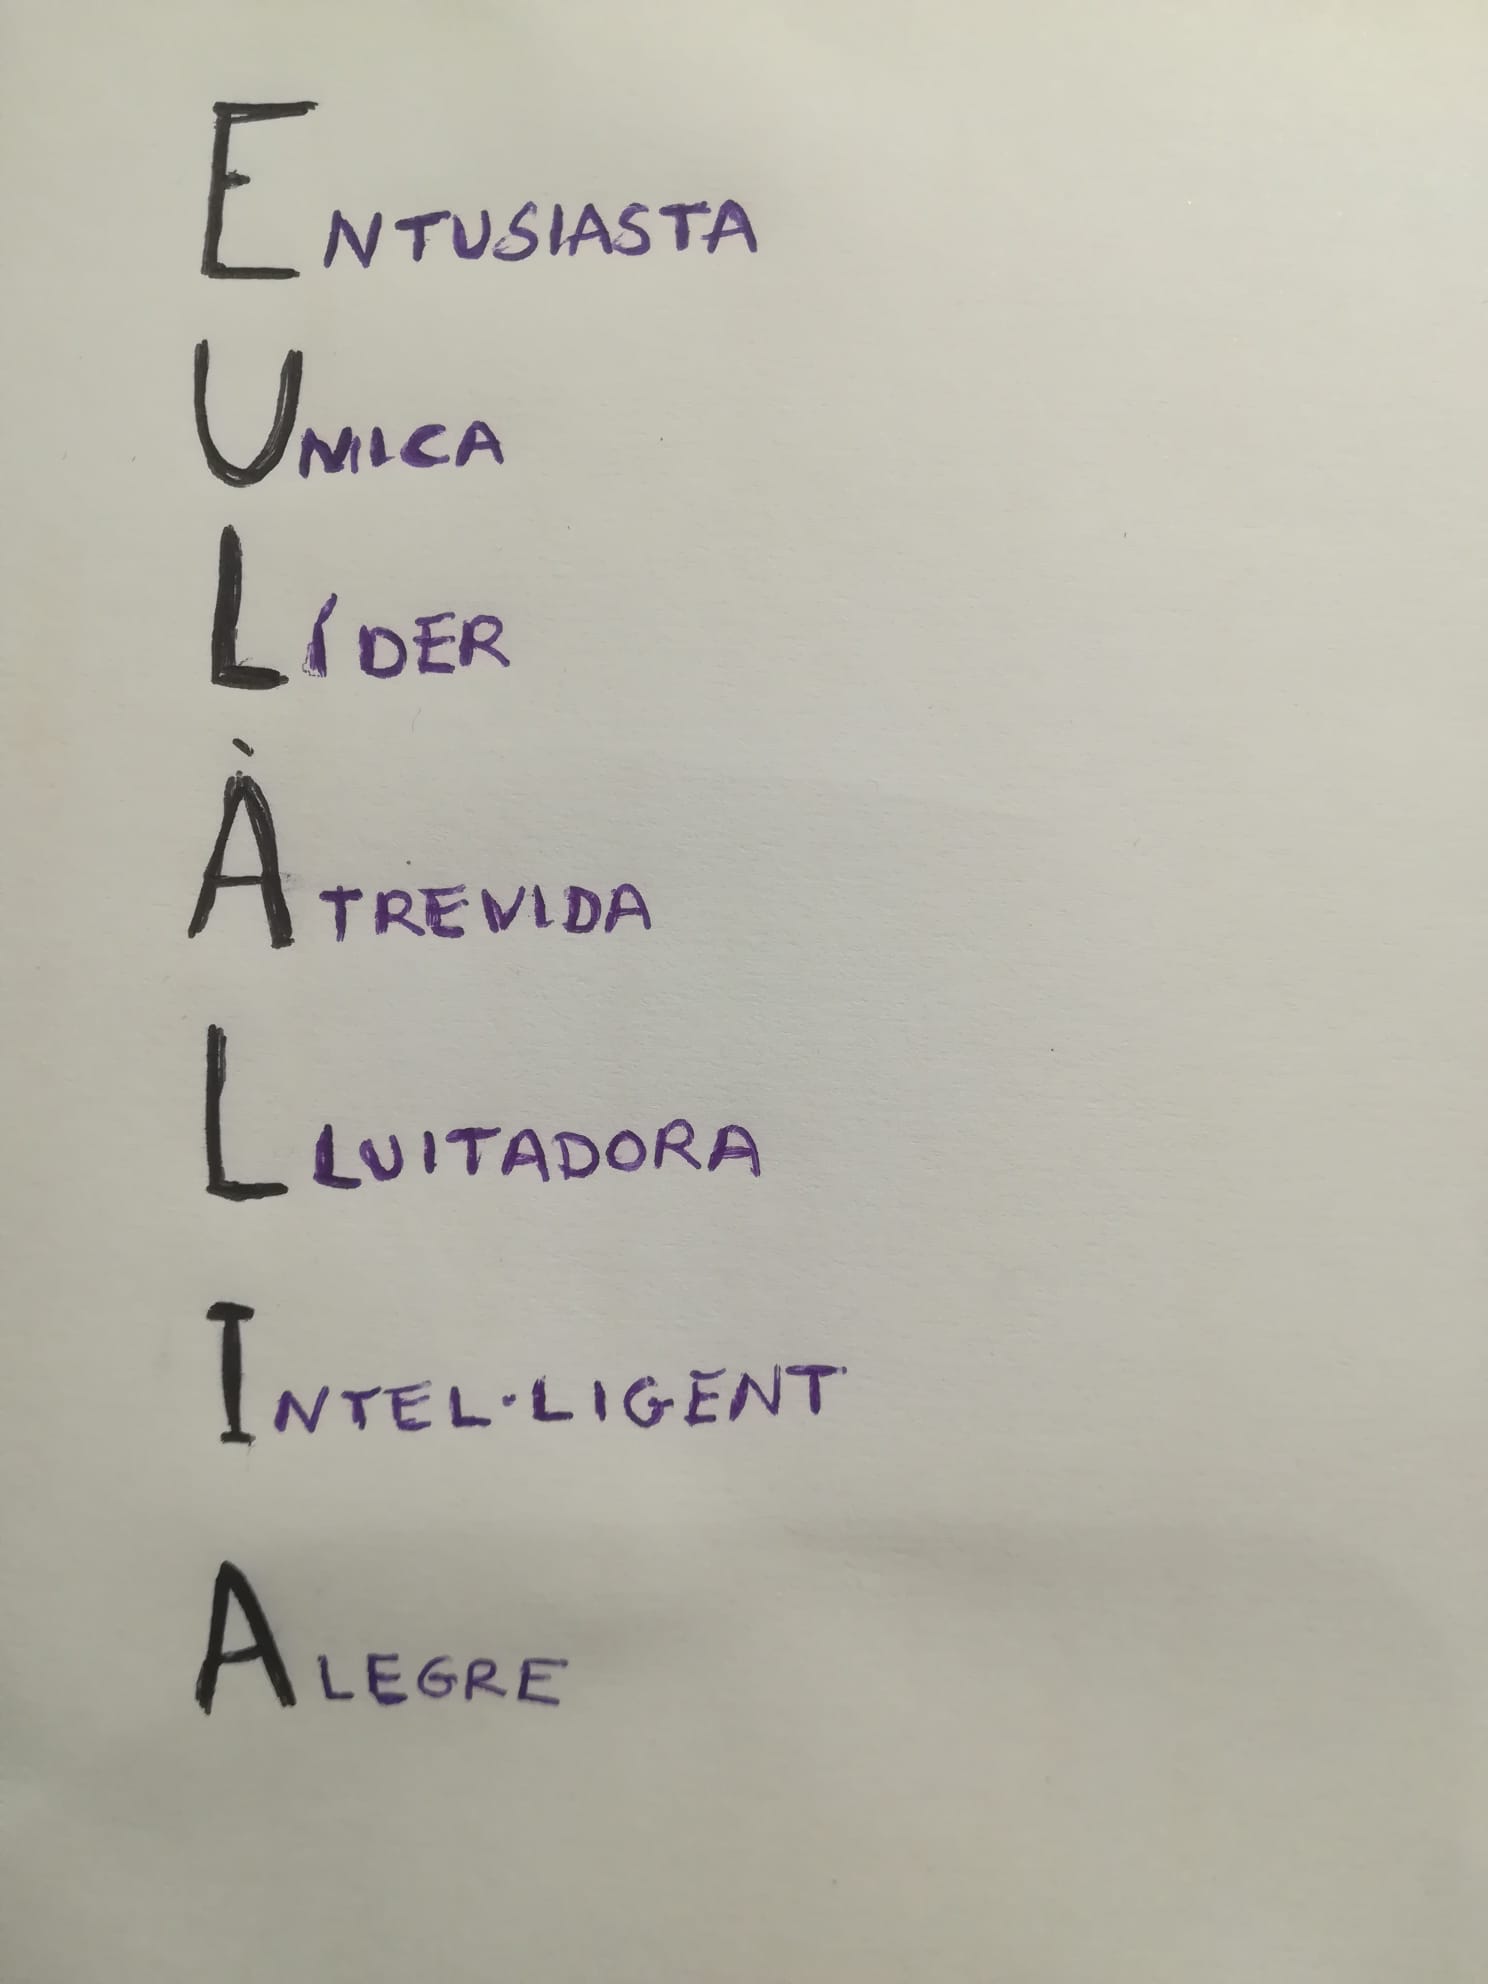 ENTUSIASTA
UNICA
LÍDER
ÀTREVIDA
LLUITADORA
INTEL·LIGENT
ALEGRE